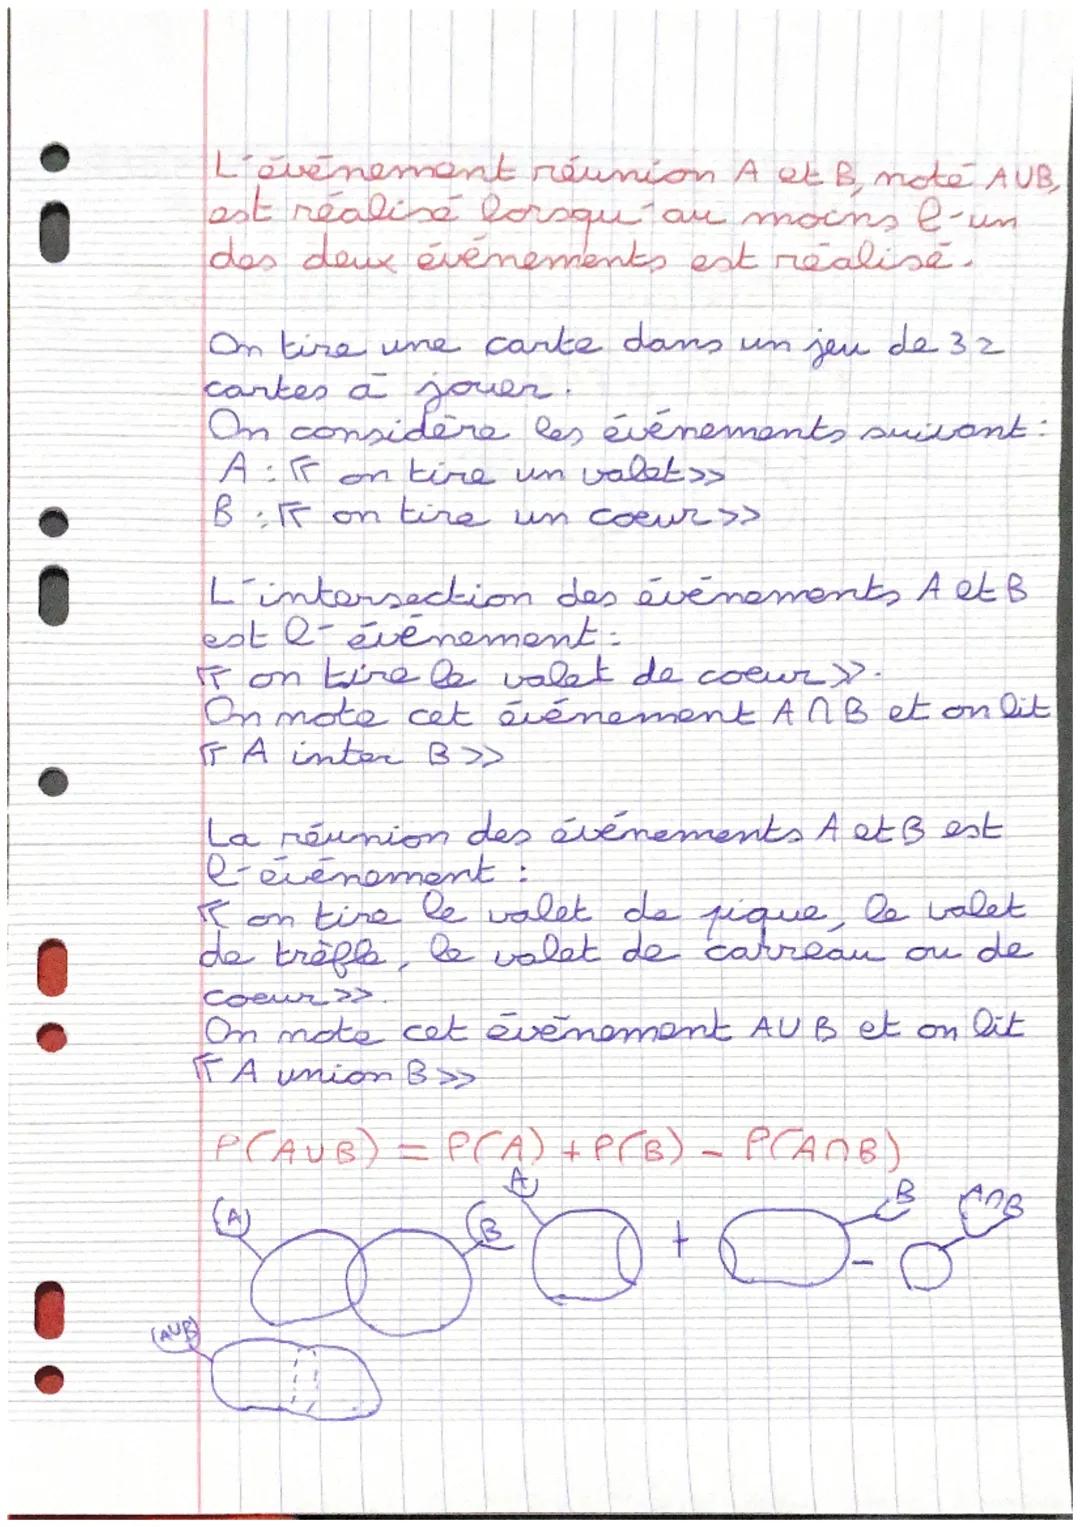 L'événement réunion A et B, noté A∪B,
est réalisé lorsqu'au moins l'un
des deux événements est réalisé.
On tire une carte dans un jeu de 32
cartes à jouer.
On considère les événements suivant :
A : « on tire un valet »
B : « on tire un coeur »
L'intersection des événements A et B
est l'événement :
« on tire le valet de coeur ».
On note cet événement A∩B et on lit
« A inter B »
La réunion des événements A et B est
l'événement :
« on tire le valet de pique, le valet
de trèfle, le valet de carreau ou de
coeur ».
On note cet événement A∪B et on lit
« A union B »
P(A∪B) = P(A) + P(B) - P(A∩B)
(A) (B) A + B - A∩B
(A∪B)